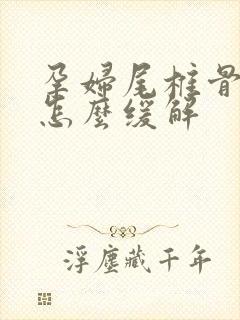 孕婦尾椎骨
怎麼缓解
浮塵藏千年